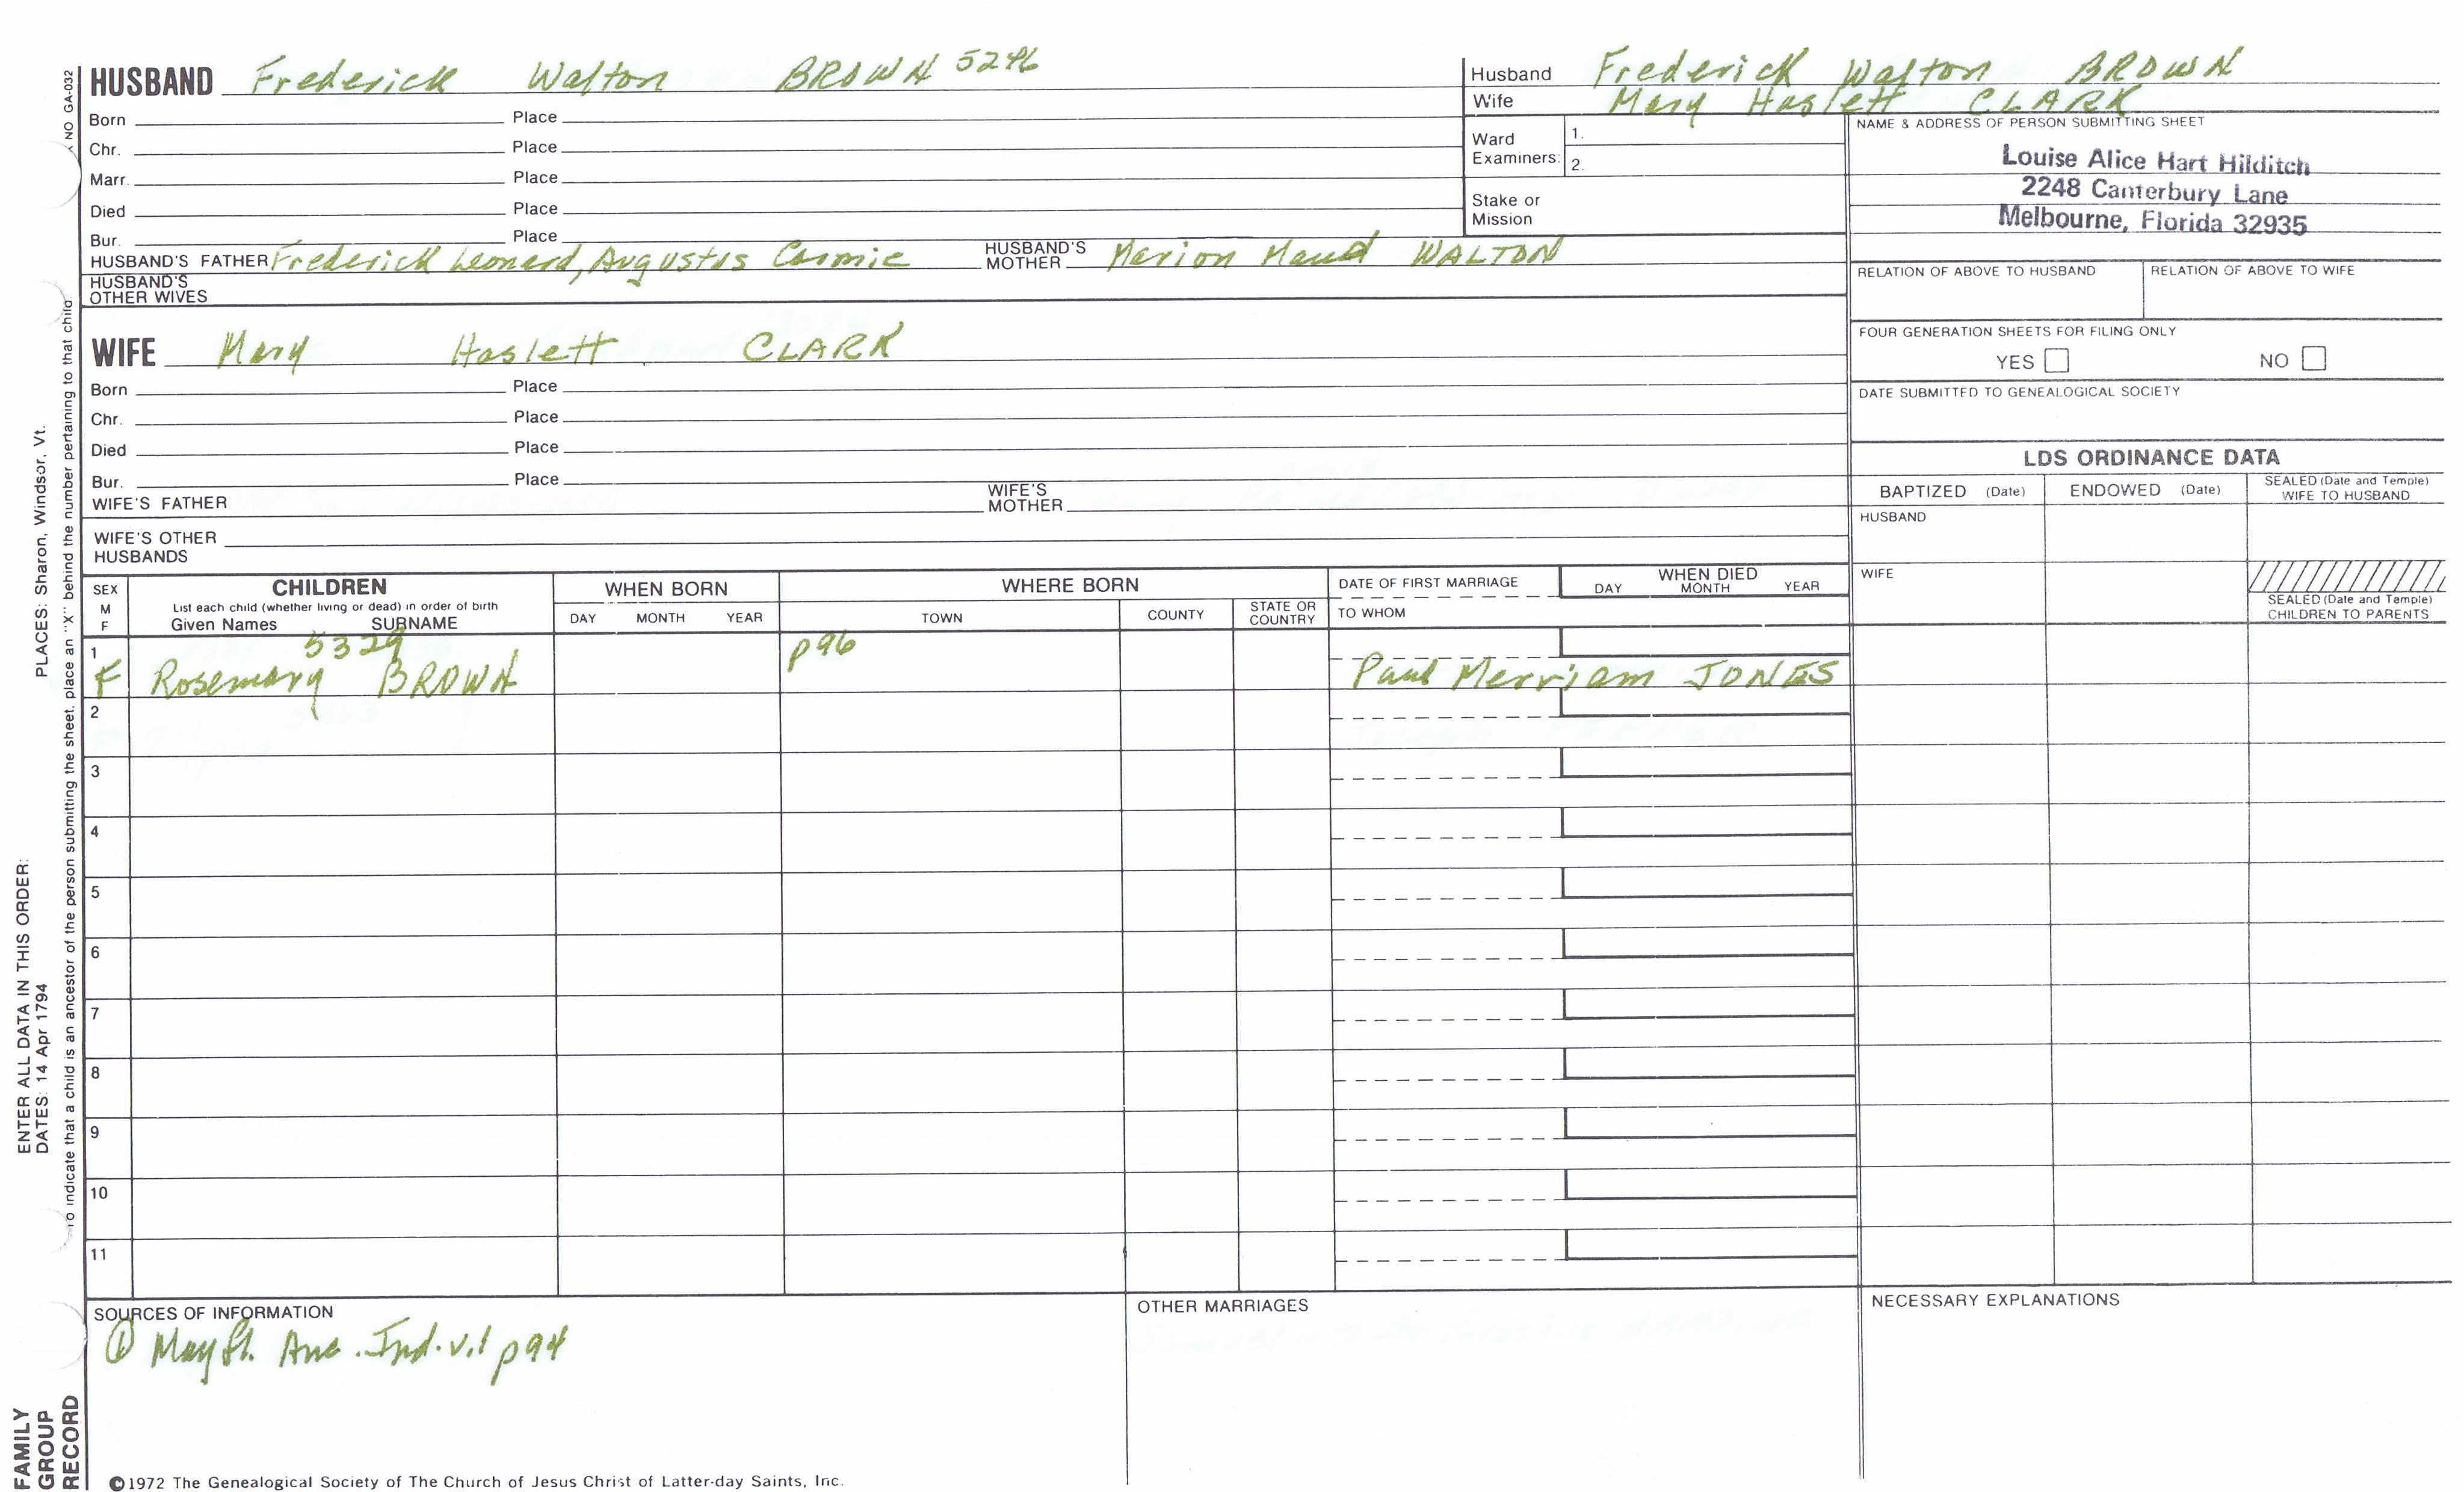 HUSBAND Frederick Walton BROWN 5296
Born Place
Chr. Place
Marr. Place
Died Place
Bur. Place
HUSBAND'S FATHER Frederick Leonard, Augustus Carmic HUSBAND'S MOTHER Marion Maud WALTON
HUSBAND'S OTHER WIVES
WIFE Mary Haslett CLARK
Born Place
Chr. Place
Died Place
Bur. Place
WIFE'S FATHER WIFE'S MOTHER
WIFE'S OTHER HUSBANDS
Husband Frederick Walton BROWN
Wife Mary Haslett CLARK
Ward Examiners: 1.
2.
Stake or Mission
NAME & ADDRESS OF PERSON SUBMITTING SHEET
Louise Alice Hart Hilditch
2248 Canterbury Lane
Melbourne, Florida 32935
RELATION OF ABOVE TO HUSBAND RELATION OF ABOVE TO WIFE
FOUR GENERATION SHEETS FOR FILING ONLY
YES NO
DATE SUBMITTED TO GENEALOGICAL SOCIETY
LDS ORDINANCE DATA
BAPTIZED (Date) ENDOWED (Date) SEALED (Date and Temple) WIFE TO HUSBAND
HUSBAND
WIFE
SEALED (Date and Temple) CHILDREN TO PARENTS
SEX M F CHILDREN WHEN BORN WHERE BORN DATE OF FIRST MARRIAGE WHEN DIED
List each child (whether living or dead) in order of birth
Given Names SURNAME DAY MONTH YEAR TOWN COUNTY STATE OR COUNTRY TO WHOM DAY MONTH YEAR
1 5329 p96
F Rosemary BROWN Paul Merriam JONES
2
3
4
5
6
7
8
9
10
11
SOURCES OF INFORMATION
① May Fl. Anc. Ind. v.1 p94
OTHER MARRIAGES
NECESSARY EXPLANATIONS
©1972 The Genealogical Society of The Church of Jesus Christ of Latter-day Saints, Inc.
FAMILY GROUP RECORD
ENTER ALL DATA IN THIS ORDER:
DATES: 14 Apr 1794
PLACES: Sharon, Windsor, Vt.
To indicate that a child is an ancestor of the person submitting the sheet, place an "X" behind the number pertaining to that child
NO GA-032